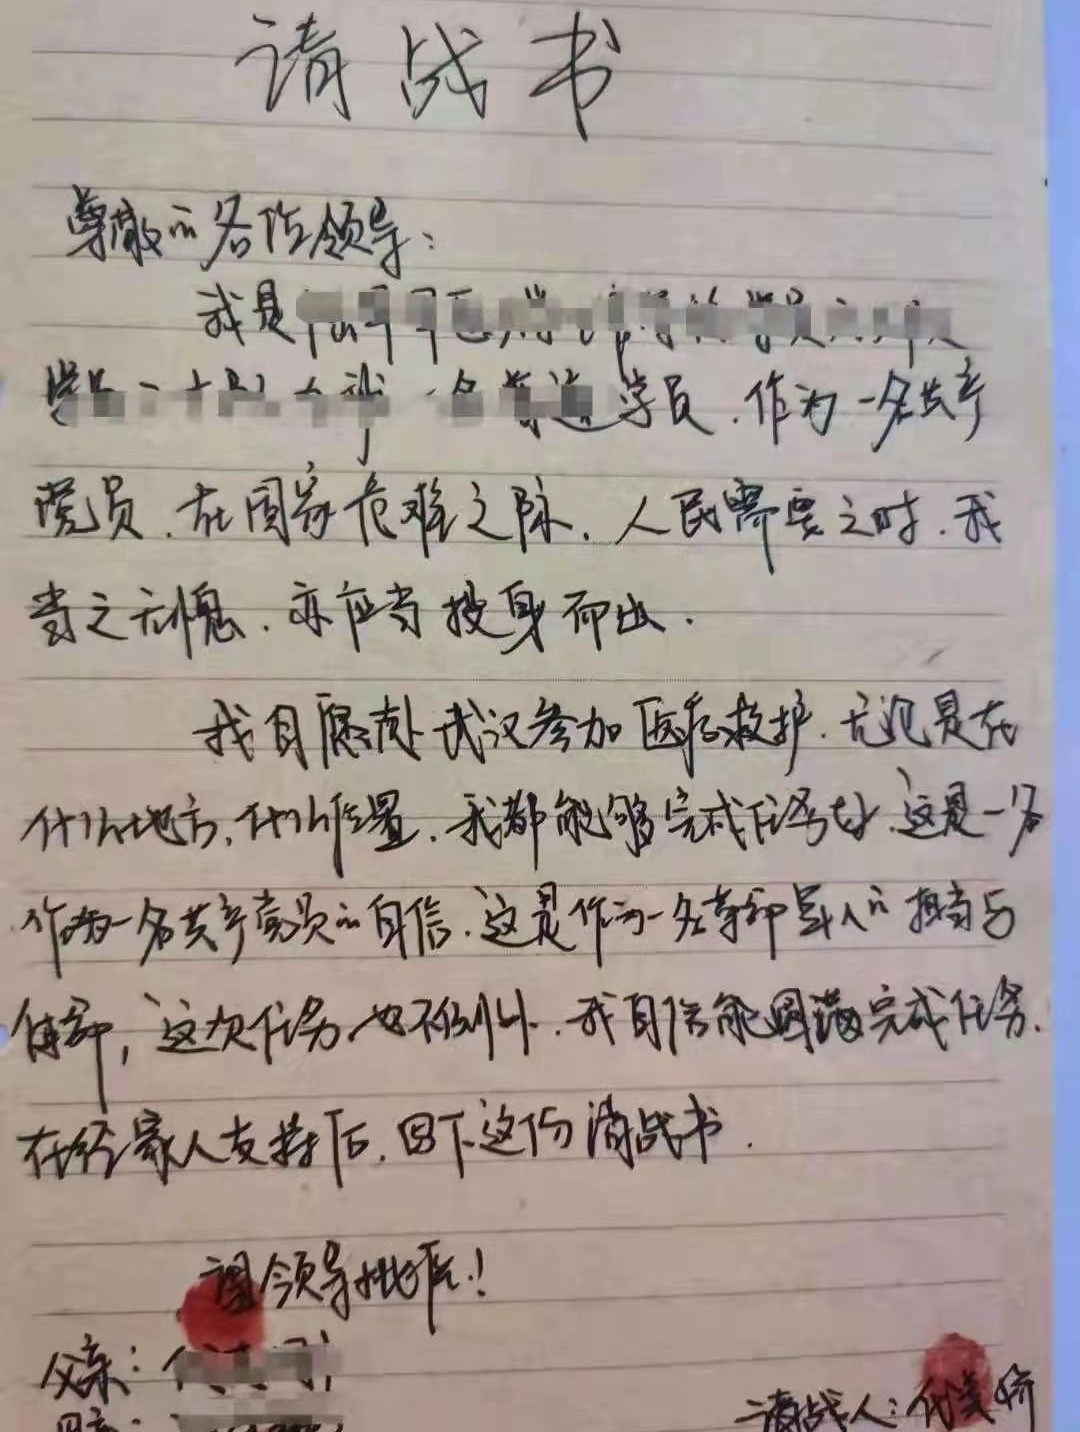 请战书
尊敬的各位领导：
我是
学员．作为一名共产
党员．在国家危难之际．人民需要之时．我
当之无愧．亦应当挺身而出．
我自愿赴武汉参加医疗救护．无论是在
什么地方，什么位置．我都能够完成任务．这是一名
作为一名共产党员的自信．这是作为一名革命军人的担当与
使命，这次任务也不例外．我自信能圆满完成任务．
在经家人支持后．写下这份请战书．
请领导批准！
父亲：
请战人：